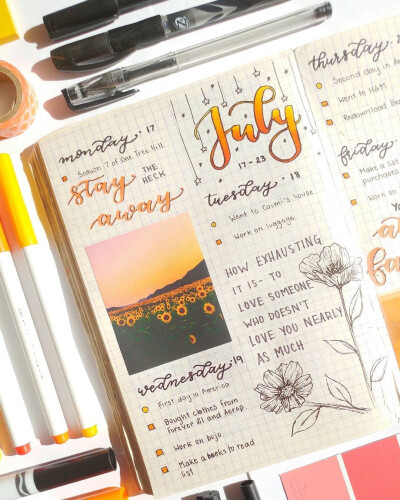 monday · 17
Season 7 of One Tree Hill
stay
THE
HECK
away
July
17 - 23
tuesday · 18
Went to Casmi's house
Work on luggage
HOW EXHAUSTING
IT IS- TO
LOVE SOMEONE
WHO DOESN'T
LOVE YOU NEARLY
AS MUCH
wednesday · 19
First day in America
Bought clothes from
Forever 21 and Aerop.
Work on bujo
Make a books to read
list
thursday · 2
Second day in A
Went to H&M
Redownload
friday ·
Make a list
purchases
Work on